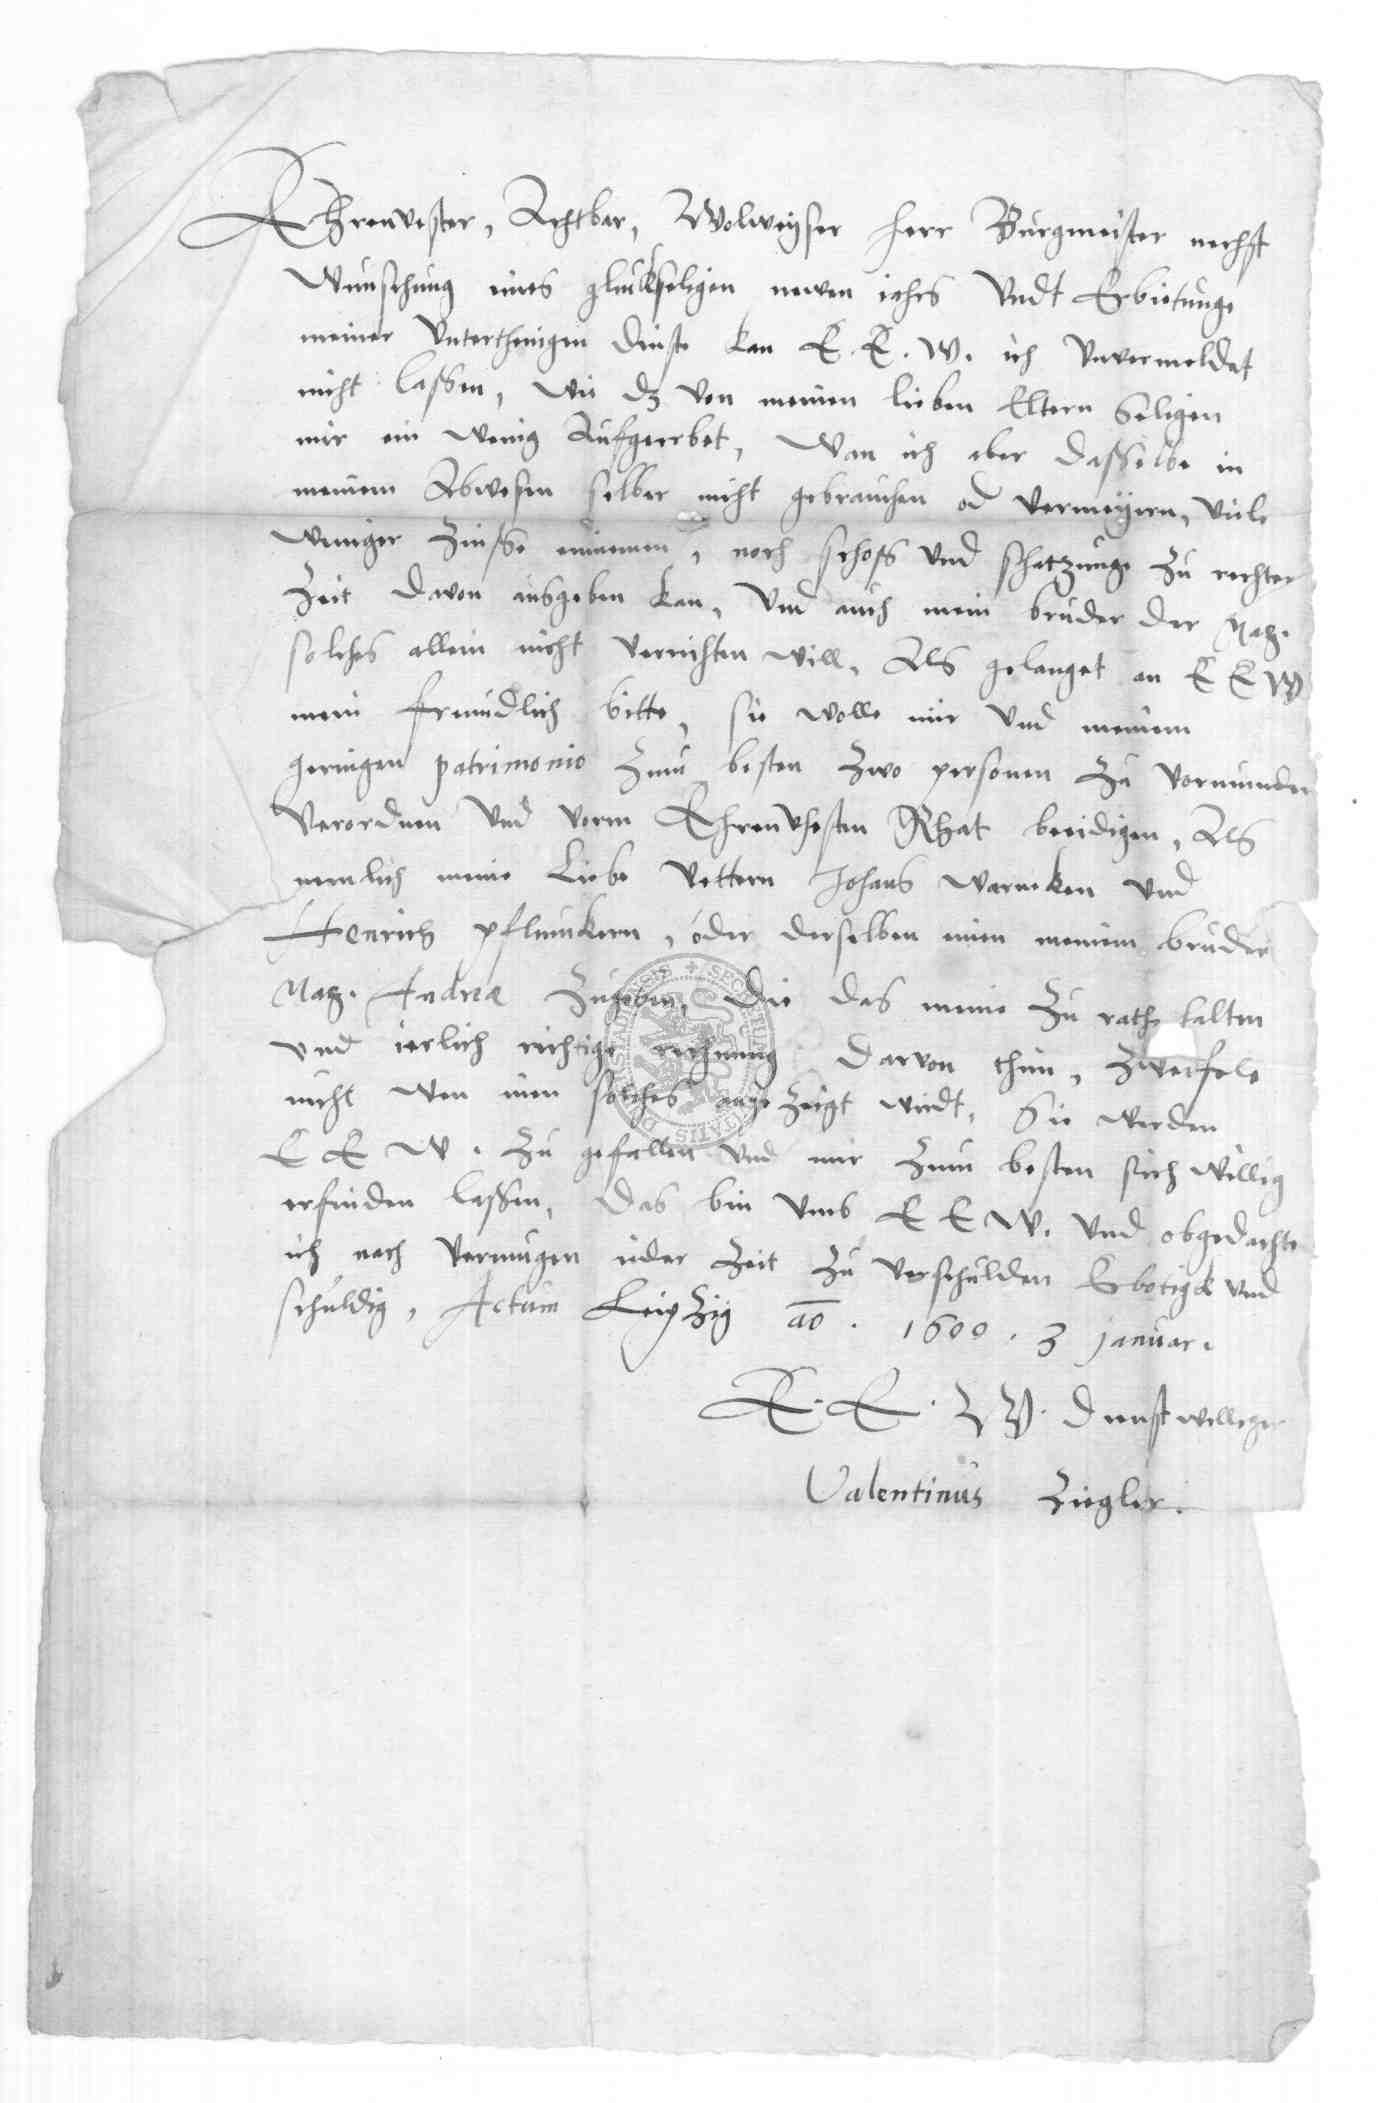 Ehrenvester, Achtbar, Wolweyser Herr Burgmeister nechst
Wunschung eines gluckseligen newen iahrs Vndt Erbietunge
meiner Vnterthenigen dinste kan E. E. W. ich Vnvermeldet
nicht lassen, wie dz von meinen lieben Eltern Seligen
mir ein wenig Aufgeerbet, Wan ich aber dasselbe in
meinem Abwesen selber nicht gebrauchen od vermeyern, viele
weniger Zinsse einnemen, noch schoss vnd schatzunge zu rechter
Zeit davon ausgeben kan, Vnd auch mein bruder der Mag.
solches allein nicht verrichten will, Als gelanget an E E W
mein freundlich bitte, sie wolle mir Vnd meinem
geringen patrimonio zum besten zwo personen zu vormunden
Verordnen Vnd vorm Ehrenvhesten Rhat beeidigen, Als
nemlich meine Liebe Vettern Johans Warneken vnd
Henrich pflumkern, oder derselben einen meinem bruder
Mag. Andreæ zugeben, die das meine zu rathe halten
vnd ierlich richtige rechnung darvon thun, Zweifele
nicht wen inen solches angezeigt wirdt, Sie werden
E E W. zu gefallen vnd mir zum besten sich willig
erfinden lassen, das bin vmb E E W. vnd obgedachte
ich nach vermugen ider Zeit zu verschulden Erbotigk vnd
schuldig, Actum Leipzig ao. 1600. 3 Januar.
E. E. W. dinstwilliger
Valentinus Ziegler.
SECRETUM CIVITATIS